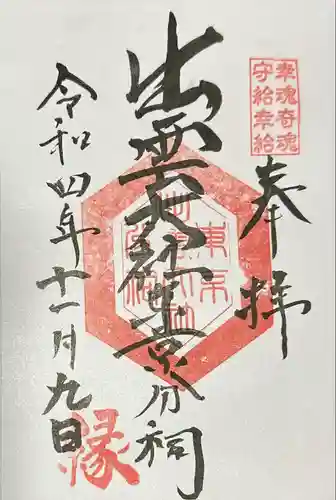 幸魂奇魂
守給幸給
奉拝
出雲大社東京分祠
令和四年十一月九日
縁